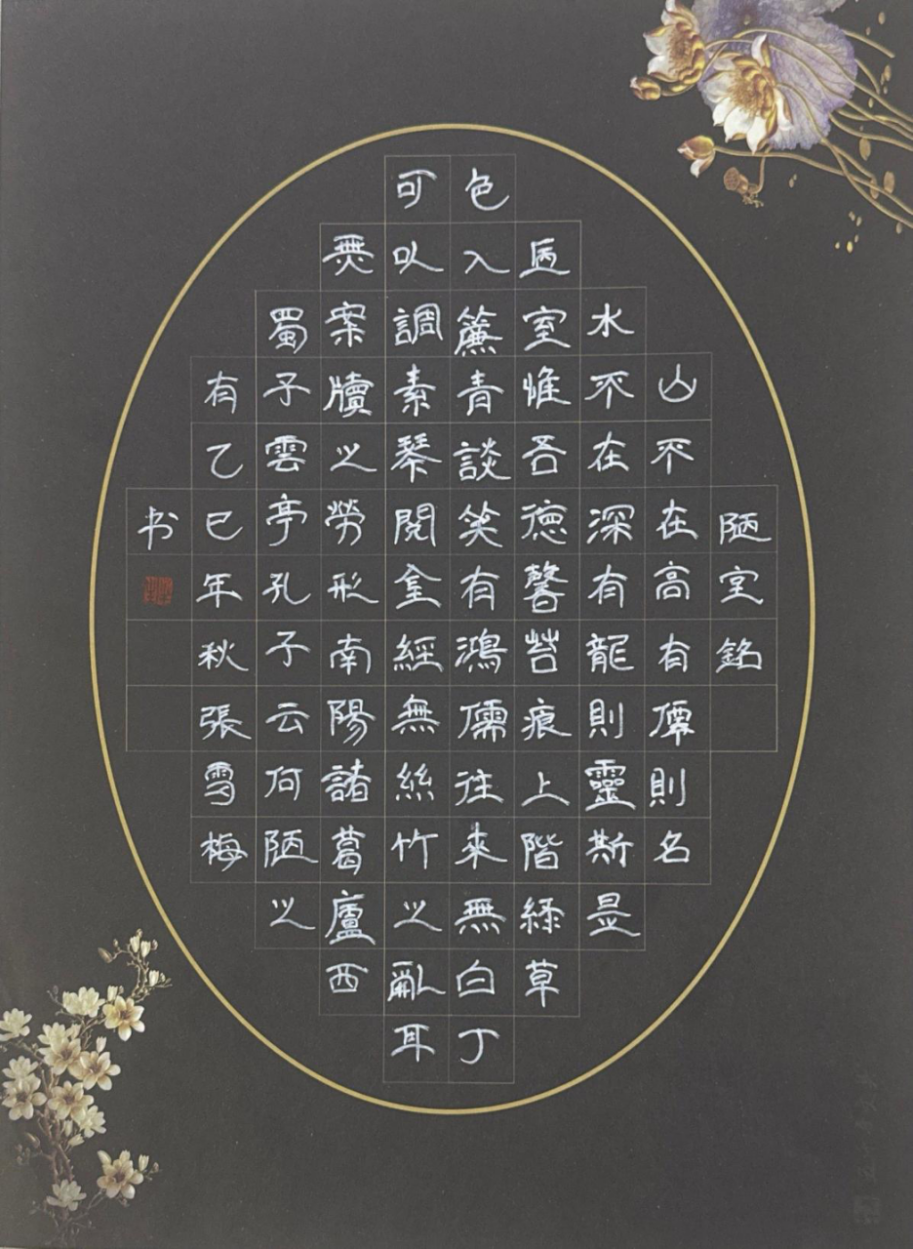 陋室銘
山不在高有僊則名
水不在深有龍則靈斯是
陋室惟吾德馨苔痕上階綠草
色入簾青談笑有鴻儒往來無白丁
可以調素琴閱金經無絲竹之亂耳
無案牘之勞形南陽諸葛廬西
蜀子雲亭孔子云何陋之
有乙巳年秋張雪梅
书